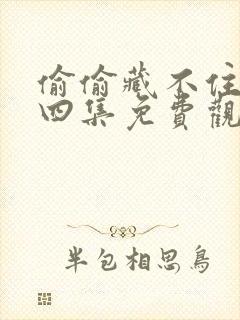 偷偷藏不住
四集免費觀
半包相思鳥